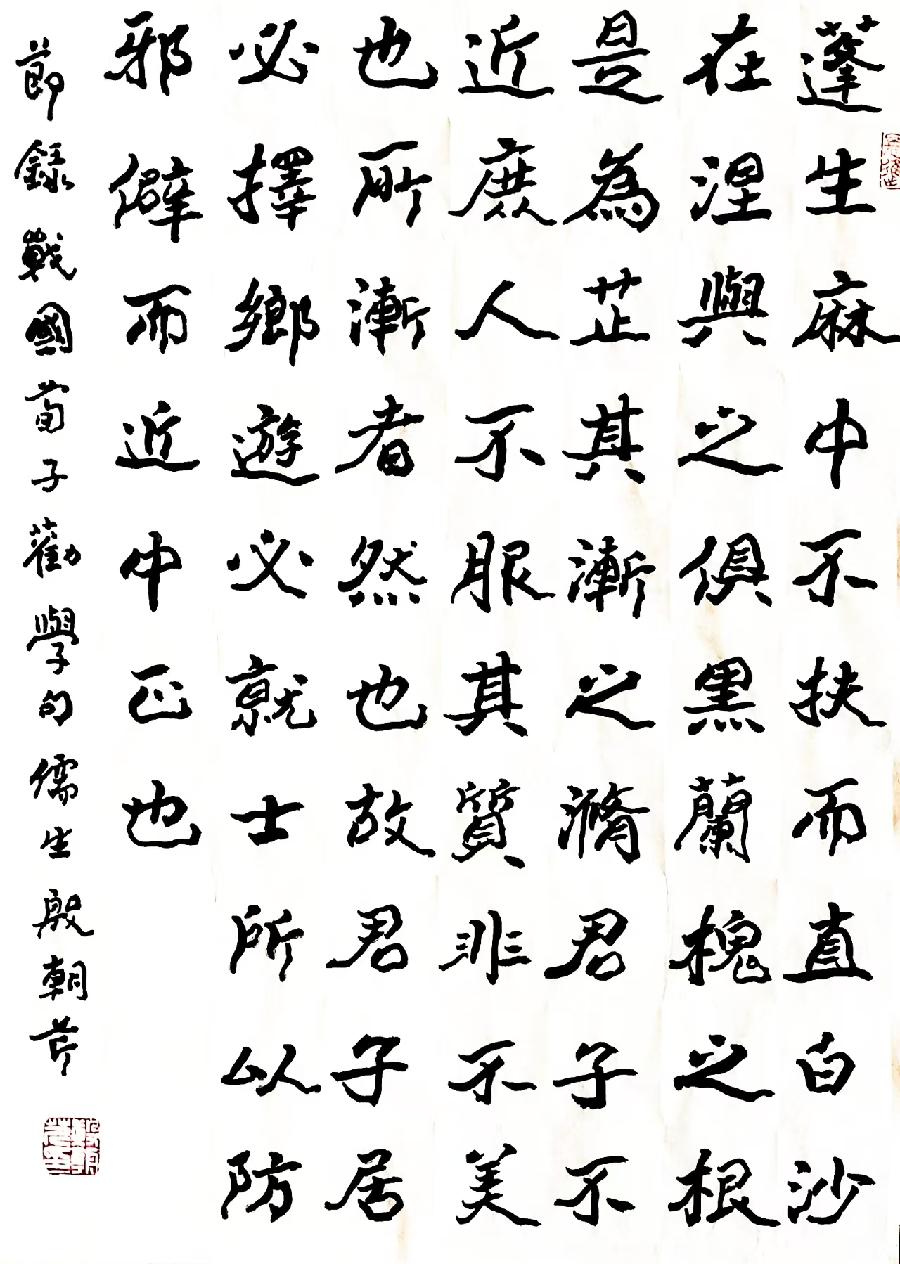 蓬生麻中不扶而直白沙
在涅與之俱黑蘭槐之根
是為芷其漸之滫君子不
近庶人不服其質非不美
也所漸者然也故君子居
必擇鄉遊必就士所以防
邪僻而近中正也
節錄戰國荀子勸學句儒生殷朝芹